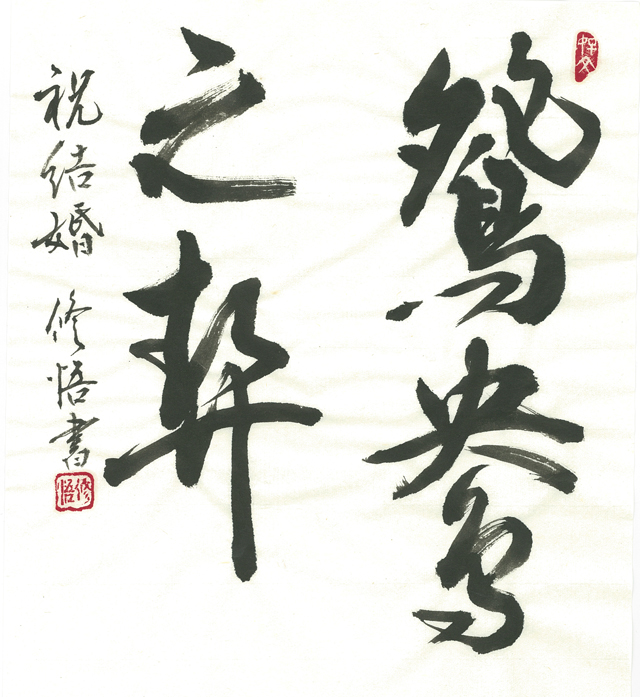 鴛鴦
之契
祝結婚 修悟書
修悟